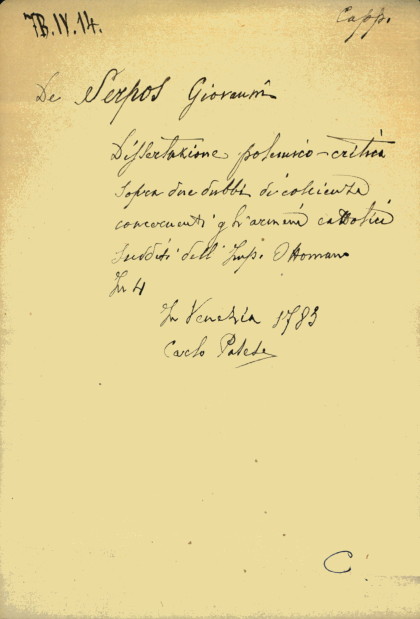 7B.IV.14.
Capp.
De Serpos Giovanni
Dissertazione polemico-critica
sopra due dubbi di coscienza
concernenti gli armeni cattolici
sudditi dell'Imp. Ottomano
In 4
In Venezia 1783
Carlo Palese
C